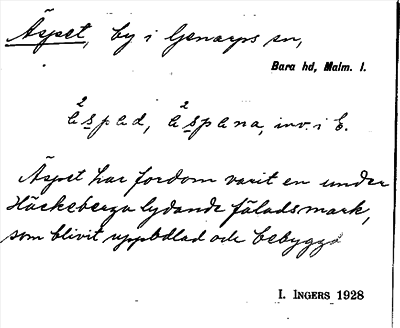 Äspet, by i Genarps sn,
Bara hd, Malm. l.
inv. i Ä.
Äspet har fordom varit en under
Häckeberga lydande fäladsmark,
som blivit uppodlad och bebyggd
I. INGERS 1928